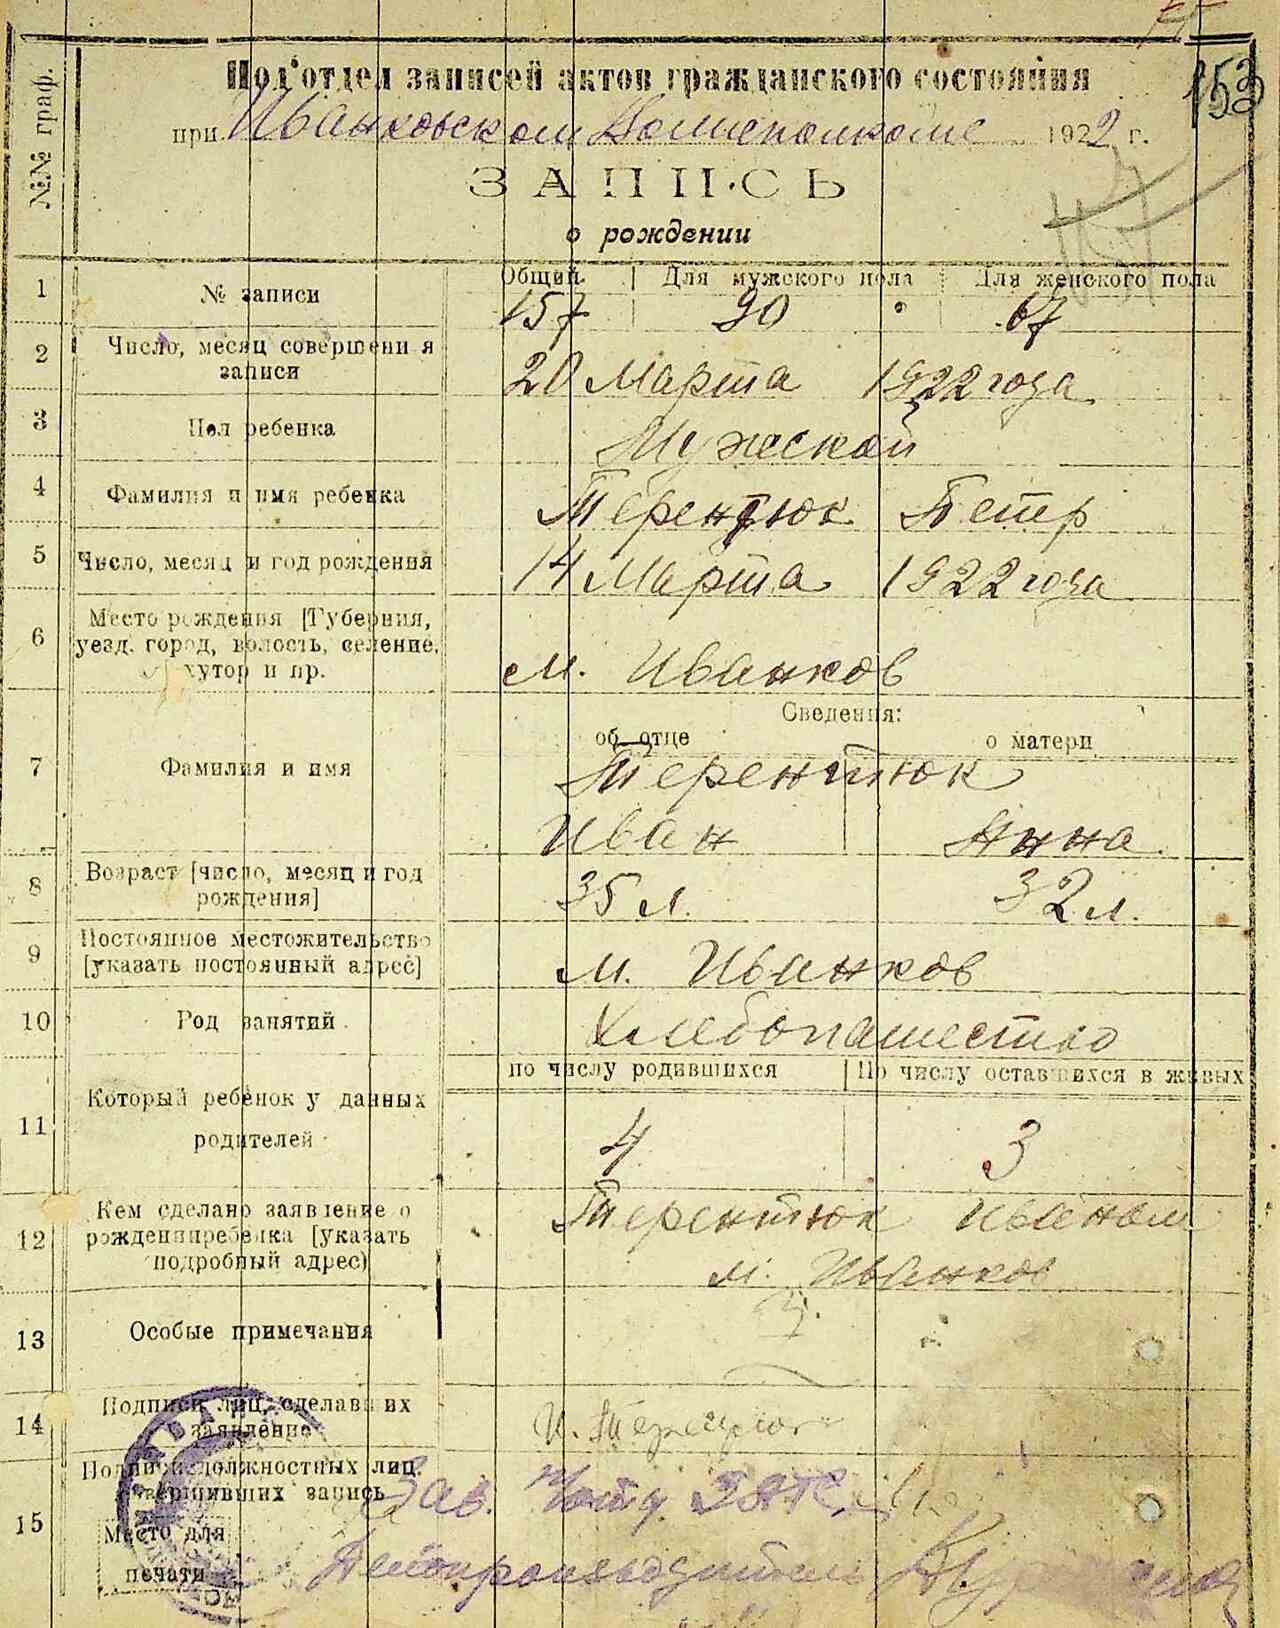 153
№№ граф.
Под'отдел записей актов гражданского состояния
при Иванковском Волисполкоме 1922 г.
ЗАПИСЬ
о рождении
1 № записи Общий Для мужского пола Для женского пола
157 90 67
2 Число, месяц совершения записи
20 Марта 1922 года
3 Пол ребенка Мужской
4 Фамилия и имя ребенка Терентюк Петр
5 Число, месяц и год рождения 14 Марта 1922 года
6 Место рождения [Губерния,
уезд, город, волость, селение,
хутор и пр. м. Иванков
Сведения:
об отце о матери
7 Фамилия и имя Терентюк
Иван Анна
8 Возраст [число, месяц и год
рождения] 35 л. 32 л.
9 Постоянное местожительство
[указать постоянный адрес] м. Иванков
10 Род занятий Хлебопашество
по числу родившихся По числу оставшихся в живых
11 Который ребенок у данных
родителей 4 3
12 Кем сделано заявление о
рождении ребенка [указать
подробный адрес) Терентюк Иваном
м. Иванков
13 Особые примечания
14 Подписи лиц, сделавших
заявление И.
15 Подписи должностных лиц,
совершивших запись Зав. ЗАГС
Место для
печати Делопроизводитель